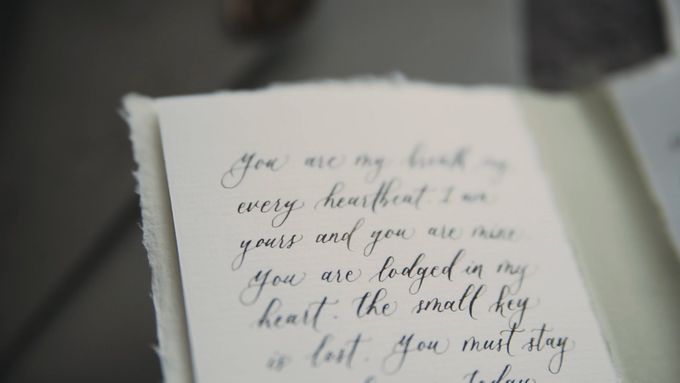 You are my breath my
every heartbeat. I am
yours and you are mine
You are lodged in my
heart. the small key
is lost. You must stay
Today